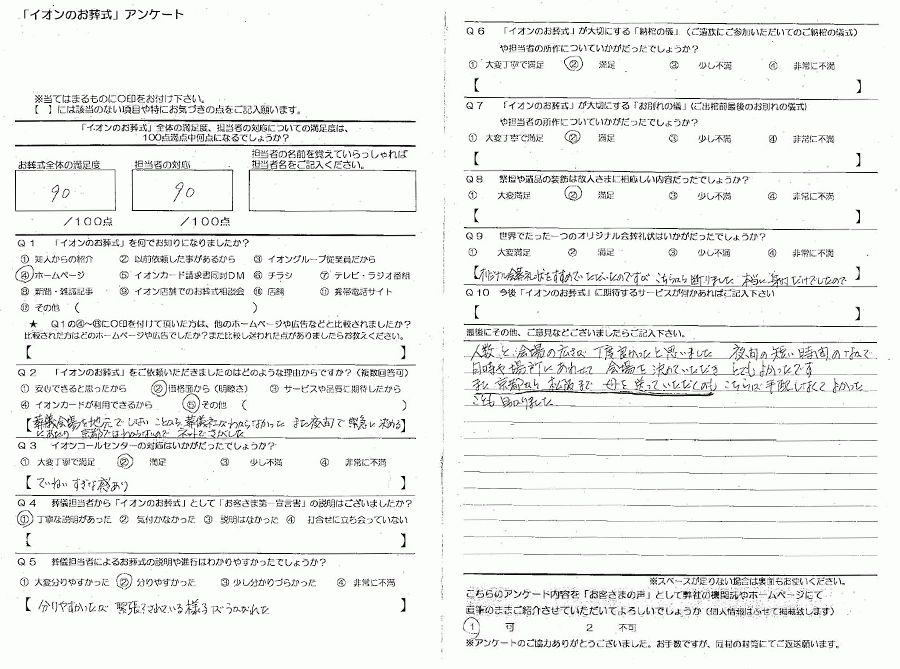 「イオンのお葬式」アンケート
※当てはまるものに○印をお付け下さい。
【 】には該当のない項目や特にお気づきの点をご記入願います。
「イオンのお葬式」全体の満足度、担当者の対応についての満足度は、
100点満点中何点になるでしょうか？
お葬式全体の満足度 担当者の対応 担当者の名前を覚えていらっしゃれば
担当者名をご記入ください。
90 90
／100点 ／100点
Q1 「イオンのお葬式」を何でお知りになりましたか？
① 知人からの紹介 ② 以前依頼した事があるから ③ イオングループ従業員だから
④ ホームページ ⑤ イオンカード請求書同封DM ⑥ チラシ ⑦ テレビ・ラジオ番組
⑧ 新聞・雑誌記事 ⑨ イオン店舗でのお葬式相談会 ⑩ 店舗 ⑪ 携帯電話サイト
⑫ その他 （ ）
★ Q1の④～⑫に○印を付けて頂いた方は、他のホームページや広告などと比較されましたか？
比較された方はどのホームページや広告でしたか？また比較し迷われた点がありましたらお教えください。
【 】
Q2 「イオンのお葬式」をご依頼いただきましたのはどのような理由からですか？（複数回答可）
① 安心できると思ったから ② 価格面から（明瞭さ） ③ サービスや品質に期待したから
④ イオンカードが利用できるから ⑤ その他 （ ）
【葬儀会場を地元でしたい ことから 葬儀社がわからなかった また夜向で 緊急に 求める
にあたり 京都ではわからないので ネットでさがした
Q3 イオンコールセンターの対応はいかがだったでしょうか？
① 大変丁寧で満足 ② 満足 ③ 少し不満 ④ 非常に不満
【 ていねいすぎな感あり 】
Q4 葬儀担当者から「イオンのお葬式」として「お客さま第一宣言書」の説明はございましたか？
① 丁寧な説明があった ② 気付かなかった ③ 説明はなかった ④ 打合せに立ち会っていない
【 】
Q5 葬儀担当者によるお葬式の説明や進行はわかりやすかったでしょうか？
① 大変分りやすかった ② 分りやすかった ③ 少し分かりづらかった ④ 非常に不満
【 分りやすかったが 緊張されている様子がうかがえた 】
Q6 「イオンのお葬式」が大切にする「納棺の儀」（ご遺族にご参加いただいてのご納棺の儀式）
や担当者の所作についていかがだったでしょうか？
① 大変丁寧で満足 ② 満足 ③ 少し不満 ④ 非常に不満
【 】
Q7 「イオンのお葬式」が大切にする「お別れの儀」（ご出棺前最後のお別れの儀式）
や担当者の所作についていかがだったでしょうか？
① 大変丁寧で満足 ② 満足 ③ 少し不満 ④ 非常に不満
【 】
Q8 祭壇や遺品の装飾は故人さまに相応しい内容だったでしょうか？
① 大変満足 ② 満足 ③ 少し不満 ④ 非常に不満
【 】
Q9 世界でたった一つのオリジナル会葬礼状はいかがだったでしょうか？
① 大変満足 ② 満足 ③ 少し不満 ④ 非常に不満
【オリジナル会葬礼状をすすめていただいたのですが こちらから断りました 本当に身内だけでしたので
Q10 今後「イオンのお葬式」に期待するサービスが付かあればご記入下さい
【 】
最後にその他、ご意見などございましたらご記入下さい。
人数と会場の広さは 丁度良かったと思いました 夜向の短い時間の中で
日時や場所にあわせて 会場を決めていただき とてもよかったです
また 京都から まで 母を 送っていただくのも こちらの手配しなくてよかった
ので 助かりました
※スペースが足りない場合は裏面もお使いください。
こちらのアンケート内容を「お客さまの声」として弊社の機関誌やホームページにて
直筆のままご紹介させていただいてよろしいでしょうか（個人情報はふせて掲載致します）
1 可 2 不可
※アンケートのご協力ありがとうございました。お手数ですが、同封の封筒にてご返送願います。